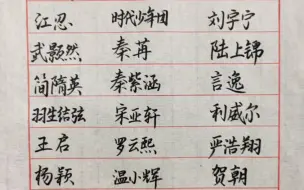 江忍 时代少年团 刘宇宁
武颢然 秦苒 陆上锦
简隋英 秦紫涵 言逸
羽生结弦 宋亚轩 利威尔
王启 罗云熙 严浩翔
杨颖 温小辉 贺朝